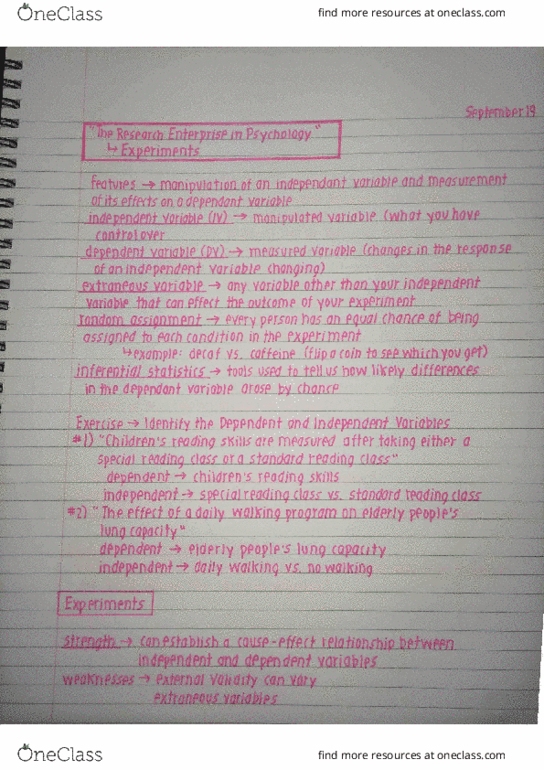 OneClass find more resources at oneclass.com
September 19
"The Research Enterprise in Psychology"
↳ Experiments
features → manipulation of an independant variable and measurement
of its effects on a dependant variable
independent variable (IV) → manipulated variable (what you have
control over
dependent variable (DV) → measured variable (changes in the response
of an independent variable changing)
extraneous variable → any variable other than your independent
variable that can effect the outcome of your experiment
random assignment → every person has an equal chance of being
assigned to each condition in the experiment
↳ example: decaf vs. caffeine (flip a coin to see which you get)
inferential statistics → tools used to tell us how likely differences
in the dependant variable arose by chance
Exercise → Identify the Dependent and Independent Variables
#1) "Children's reading skills are measured after taking either a
special reading class or a standard reading class"
dependent → children's reading skills
independent → special reading class vs. standard reading class
#2) "The effect of a daily walking program on elderly people's
lung capacity"
dependent → elderly people's lung capacity
independent → daily walking vs. no walking
Experiments
strength → can establish a cause-effect relationship between
independent and dependent variables
weaknesses → external validity can vary
extraneous variables
OneClass find more resources at oneclass.com